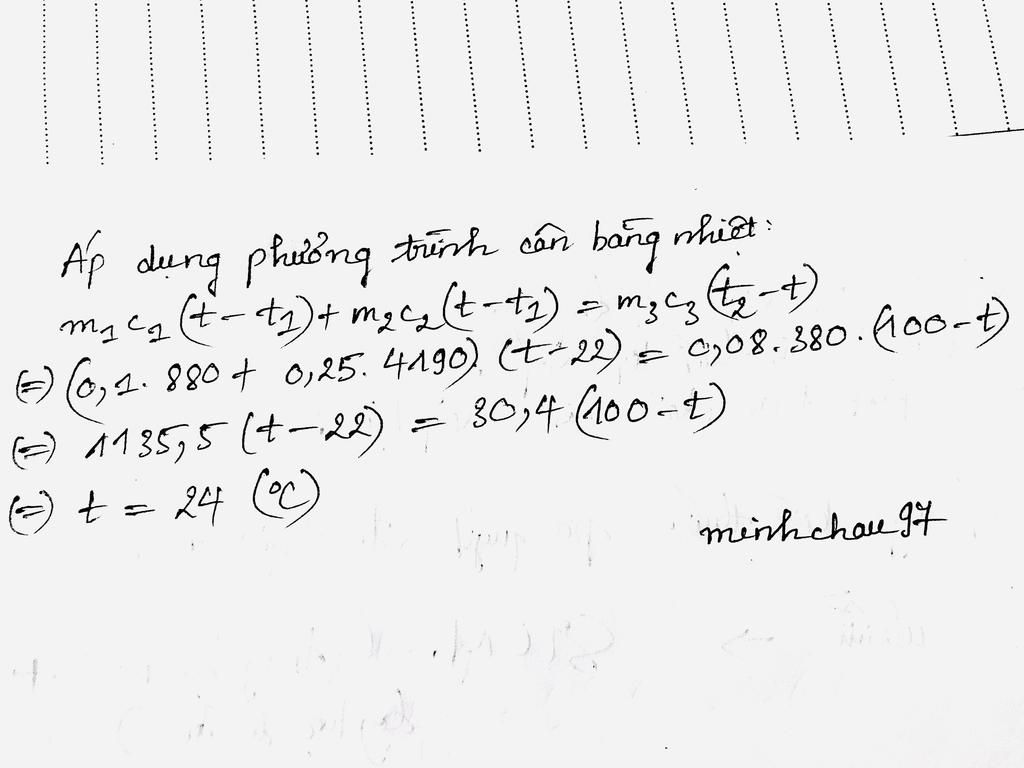 Áp dụng phương trình cân bằng nhiệt:
m₁c₁(t-t₁)+m₂c₂(t-t₁)=m₃c₃(t₂-t)
(=) (0,1.880+0,25.4190).(t-22)=0,08.380.(100-t)
(=) 1135,5(t-22)=30,4(100-t)
(=) t=24 (°C)
minhchau97